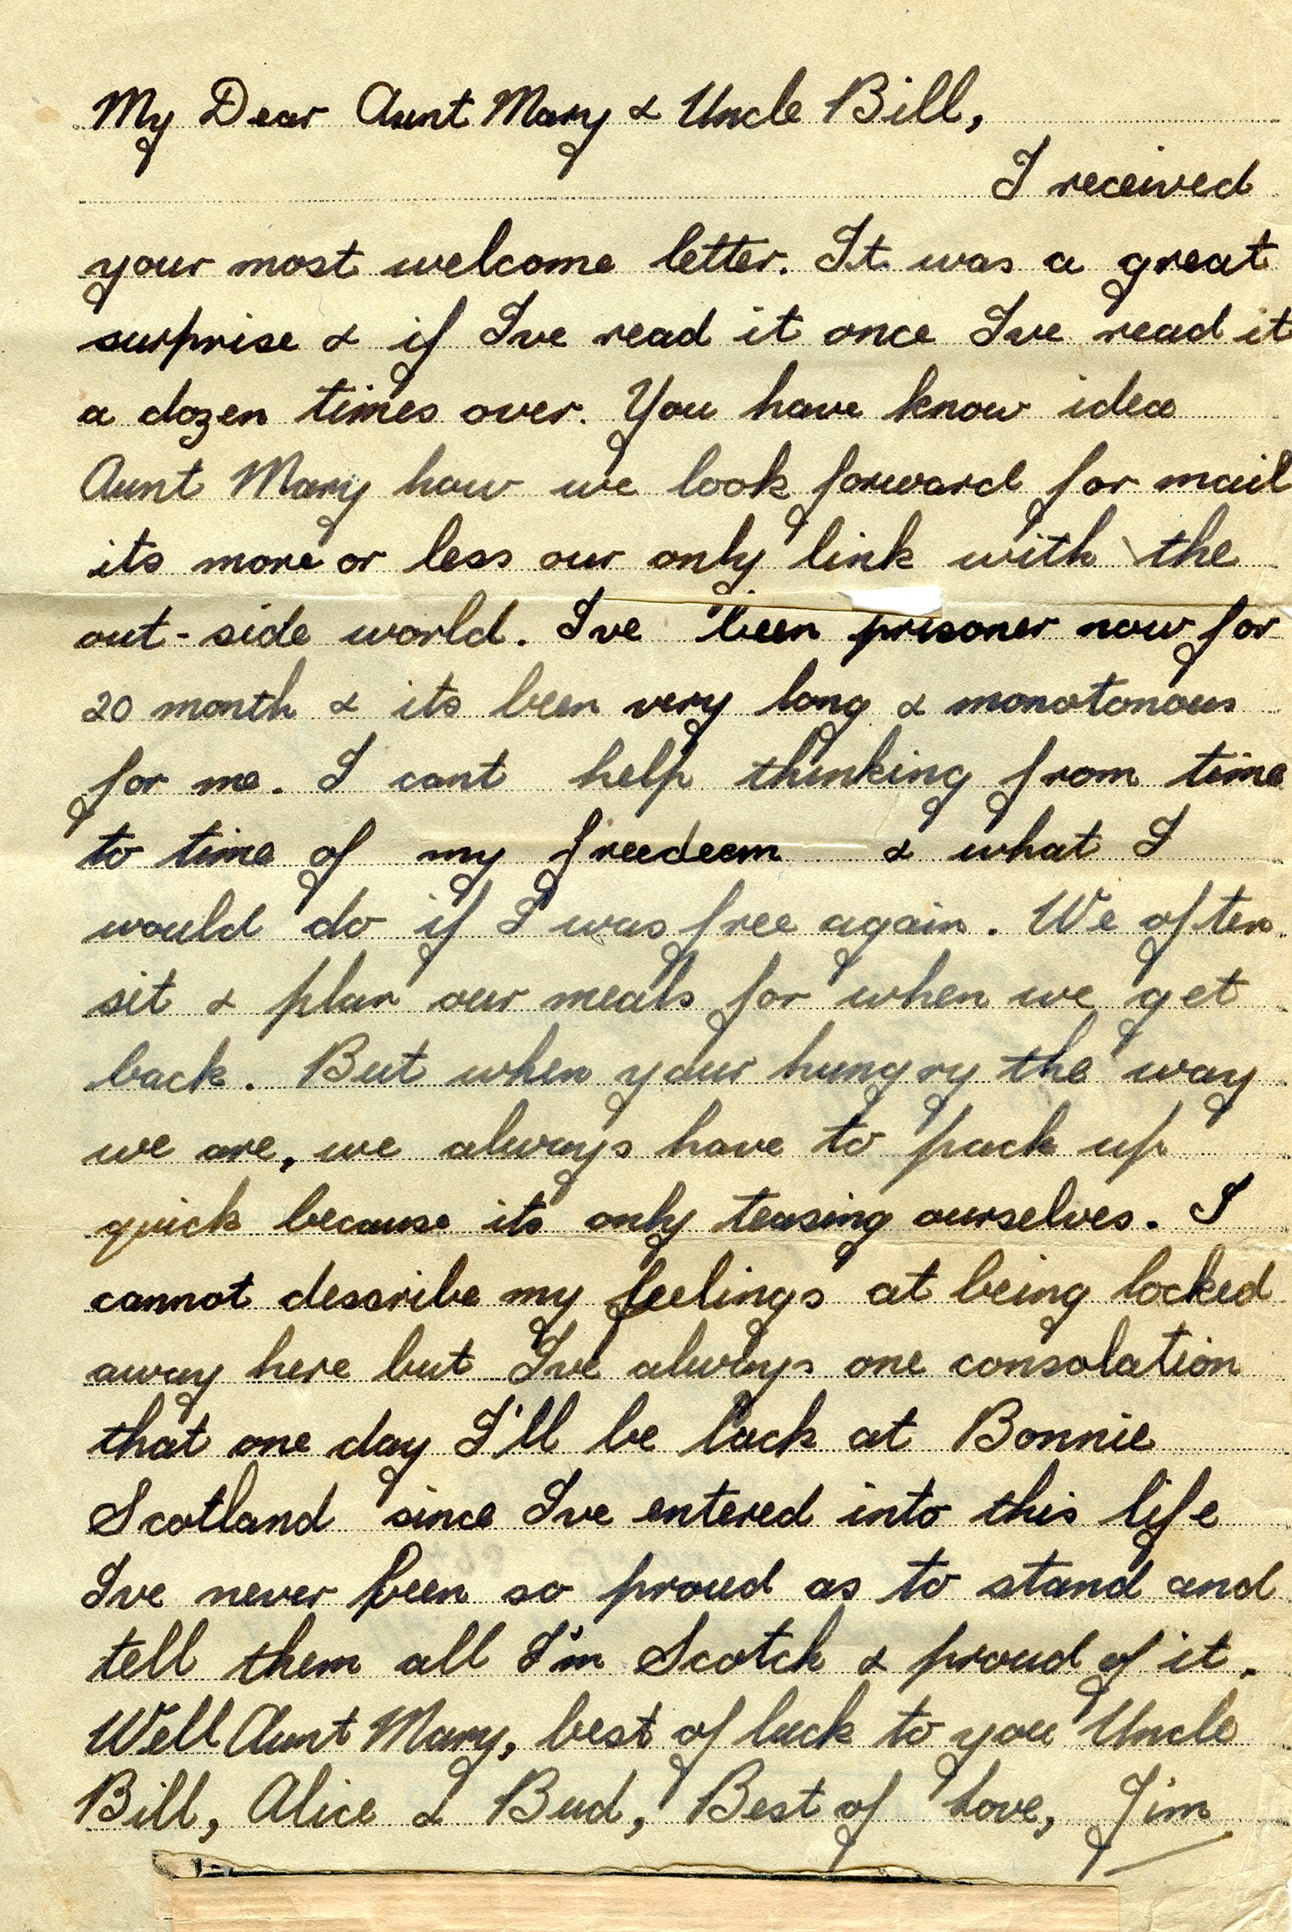 My Dear Aunt Mary & Uncle Bill,
I received
your most welcome letter. It was a great
surprise & if I've read it once I've read it
a dozen times over. You have know idea
Aunt Mary how we look forward for mail
its more or less our only link with the
out-side world. I've been prisoner now for
20 month & its been very long & monotonous
for me. I cant help thinking from time
to time of my freedeem & what I
would do if I was free again. We often
sit & plan our meals for when we get
back. But when your hungry the way
we are, we always have to pack up
quick because its only teasing ourselves. I
cannot describe my feelings at being locked
away here but I've always one consolation
that one day I'll be back at Bonnie
Scotland since I've entered into this life
I've never been so proud as to stand and
tell them all I'm Scotch & proud of it.
Well Aunt Mary, best of luck to you Uncle
Bill, Alice & Bud, Best of Love, Jim